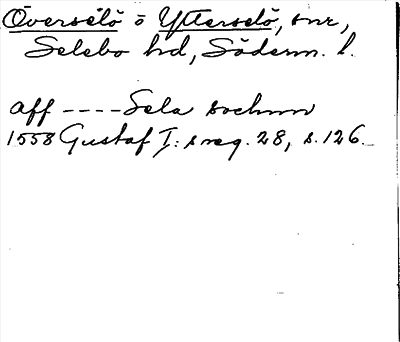 Överselö o Ytterselö, snr,
Selebo hd, Söderm. l.
aff ---- Sela sochnn
1558 Gustaf I: s reg. 28, s. 126.